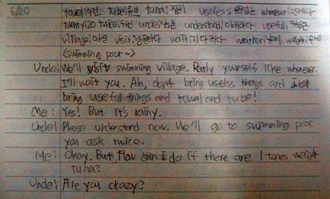 5/20
towel수건, tube튜브, tuna참치 useless 쓸모없는 whenever
twenty 20 twice두번 uncle삼촌 understand이해하다 useful
village마을 visit방문하다 wait기다리다 waiter
<swimming pool~>
Uncle: We'll visit swimming village. Ready yourself like whenever.
I'll wait you. Ah, don't bring useless things and just
bring useful things and towel and tube!
Me: Yes! But It's rainy.
Uncle: Please understand now. We'll go to swimming pool
you ask twice.
Me: Okay. But How can I do If there are 1 tunes weight
tuna?
Uncle: Are you crazy?